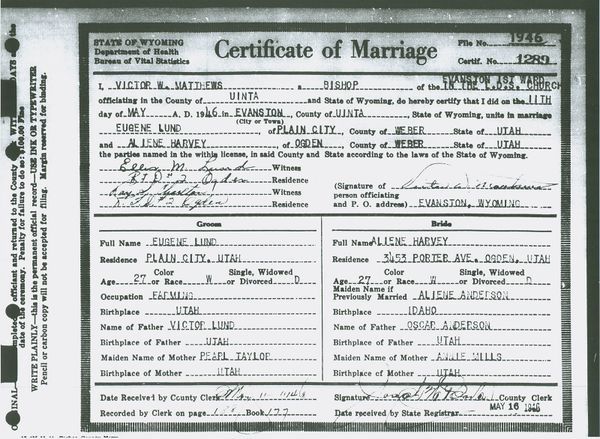 STATE OF WYOMING
Department of Health
Bureau of Vital Statistics
Certificate of Marriage
File No. 1946
Certif. No. 1289
I, VICTOR W. MATTHEWS a BISHOP of the EVANSTON 1ST WARD IN THE L.D.S. CHURCH
officiating in the County of UINTA and State of Wyoming, do hereby certify that I did on the 11TH
day of MAY A. D. 1946 in EVANSTON County of UINTA, State of Wyoming, unite in marriage
(City or Town)
EUGENE LUND of PLAIN CITY, County of WEBER State of UTAH
and ALIENE HARVEY of OGDEN, County of WEBER State of UTAH
the parties named in the within license, in said County and State according to the laws of the State of Wyoming.
M. Witness
Ogden Residence
Witness
#2 Ogden Residence
(Signature of
person officiating
and P. O. address) EVANSTON, WYOMING
Groom
Full Name EUGENE LUND
Residence PLAIN CITY, UTAH
Age 27 Color or Race W Single, Widowed or Divorced D
Occupation FARMING
Birthplace UTAH
Name of Father VICTOR LUND
Birthplace of Father UTAH
Maiden Name of Mother PEARL TAYLOR
Birthplace of Mother UTAH
Bride
Full Name ALIENE HARVEY
Residence 3453 PORTER AVE. OGDEN, UTAH
Age 27 Color or Race W Single, Widowed or Divorced D
Maiden Name if
Previously Married ALIENE ANDERSON
Birthplace IDAHO
Name of Father OSCAR ANDERSON
Birthplace of Father UTAH
Maiden Name of Mother ANNIE MILLS
Birthplace of Mother UTAH
Date Received by County Clerk
Recorded by Clerk on page Book 177
Signature County Clerk
Date received by State Registrar MAY 16 1946
officiant and returned to the County
date of the ceremony. Penalty for failure to do so: $100.00 Fine
WRITE PLAINLY—this is the permanent official record—USE INK OR TYPEWRITER
Pencil or carbon copy will not be accepted for filing. Margin reserved for binding.